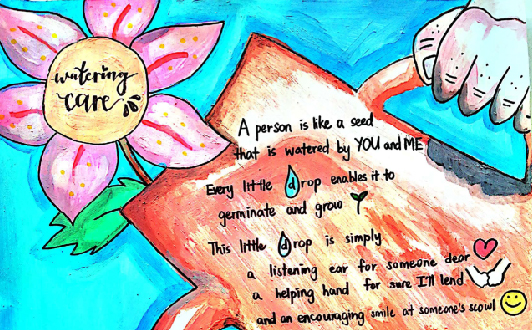 watering
care
A person is like a seed
that is watered by YOU and ME
Every little drop enables it to
germinate and grow
This little drop is simply
a listening ear for someone dear
a helping hand for sure I'll lend
and an encouraging smile at someone's scowl